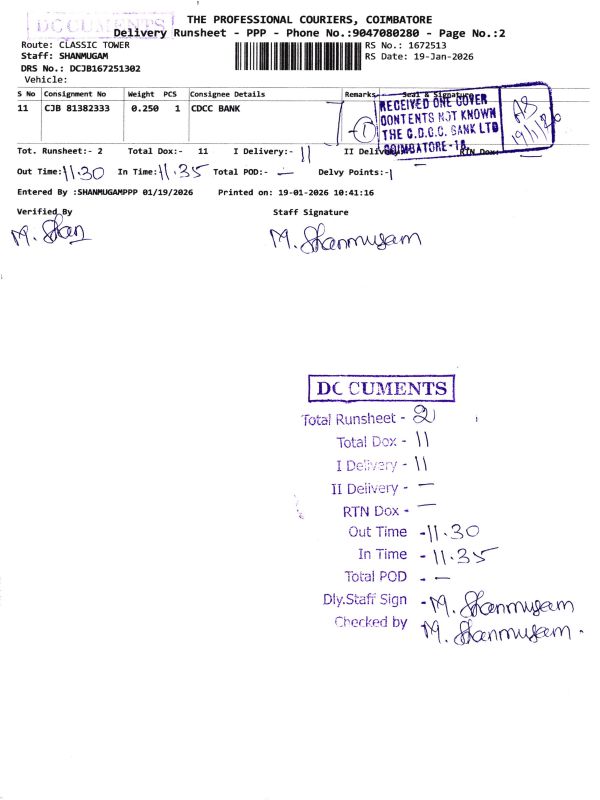 DOCUMENTS
THE PROFESSIONAL COURIERS, COIMBATORE
Delivery Runsheet - PPP - Phone No.:9047080280 - Page No.:2
Route: CLASSIC TOWER
RS No.: 1672513
Staff: SHANMUGAM
RS Date: 19-Jan-2026
DRS No.: DCJB167251302
Vehicle:
S No Consignment No Weight PCS Consignee Details Remarks Seal & Signature
11 CJB 81382333 0.250 1 CDCC BANK
1
RECEIVED ONE COVER
CONTENTS NOT KNOWN
THE C.D.C.C. BANK LTD
COIMBATORE-18.
Tot. Runsheet:- 2 Total Dox:- 11 I Delivery:- 11 II Delivery:- RTN Dox:
Out Time:11.30 In Time:11.35 Total POD:- — Delvy Points:-1
Entered By :SHANMUGAMPPP 01/19/2026 Printed on: 19-01-2026 10:41:16
Verified By Staff Signature
M. Shan M. Shanmugam
DOCUMENTS
Total Runsheet - 2
Total Dox - 11
I Delivery - 11
II Delivery - —
RTN Dox - —
Out Time - 11.30
In Time - 11.35
Total POD - —
Dly.Staff Sign - M. Shanmugam
Checked by M. Shanmugam.